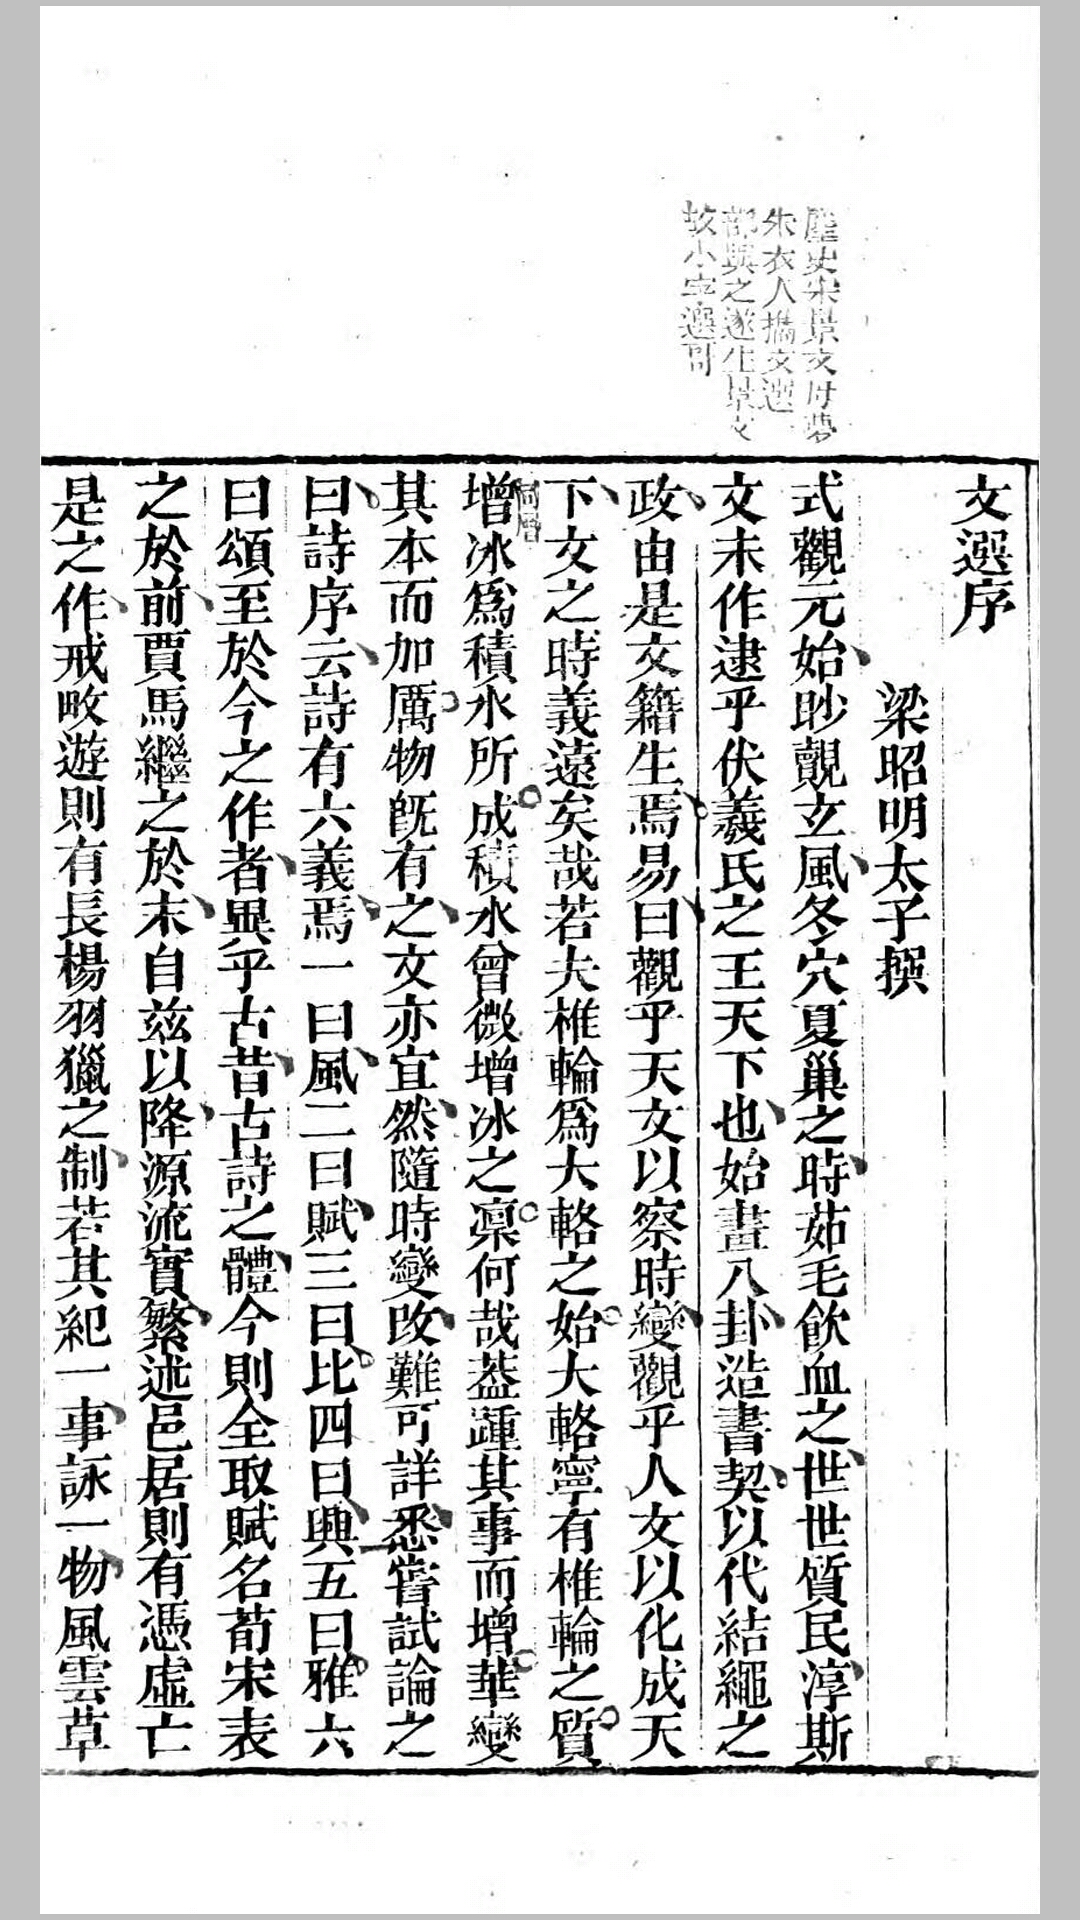 文選序
梁昭明太子撰
式觀元始眇覿玄風冬穴夏巢之時茹毛飲血之世世質民淳斯
文未作逮乎伏羲氏之王天下也始畫八卦造書契以代結繩之
政由是文籍生焉易曰觀乎天文以察時變觀乎人文以化成天
下文之時義遠矣哉若夫椎輪爲大輅之始大輅寧有椎輪之質
增冰爲積水所成積水曾微增冰之凛何哉葢踵其事而增華變
其本而加厲物旣有之文亦宜然隨時變改難可詳悉嘗試論之
曰詩序云詩有六義焉一曰風二曰賦三曰比四曰興五曰雅六
曰頌至於今之作者異乎古昔古詩之體今則全取賦名荀宋表
之於前賈馬繼之於末自兹以降源流實繁述邑居則有憑虛亡
是之作戒畋遊則有長楊羽獵之制若其紀一事詠一物風雲草
麈史宋景文母夢
朱衣人攜文選一
部與之遂生景文
故小字選哥